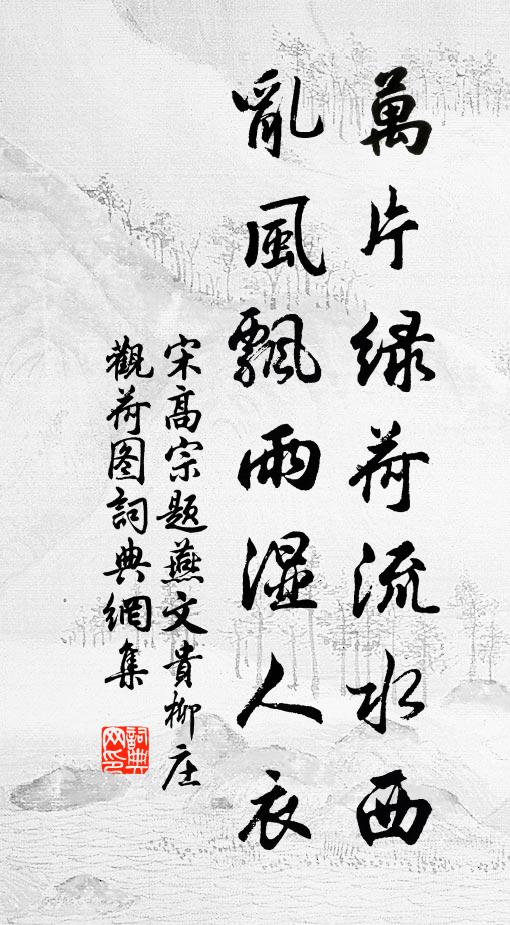 萬片绿荷流水西
亂風飄雨濕人衣
宋高宗題燕文貴柳庄
觀荷图詞典網集
詞典网印